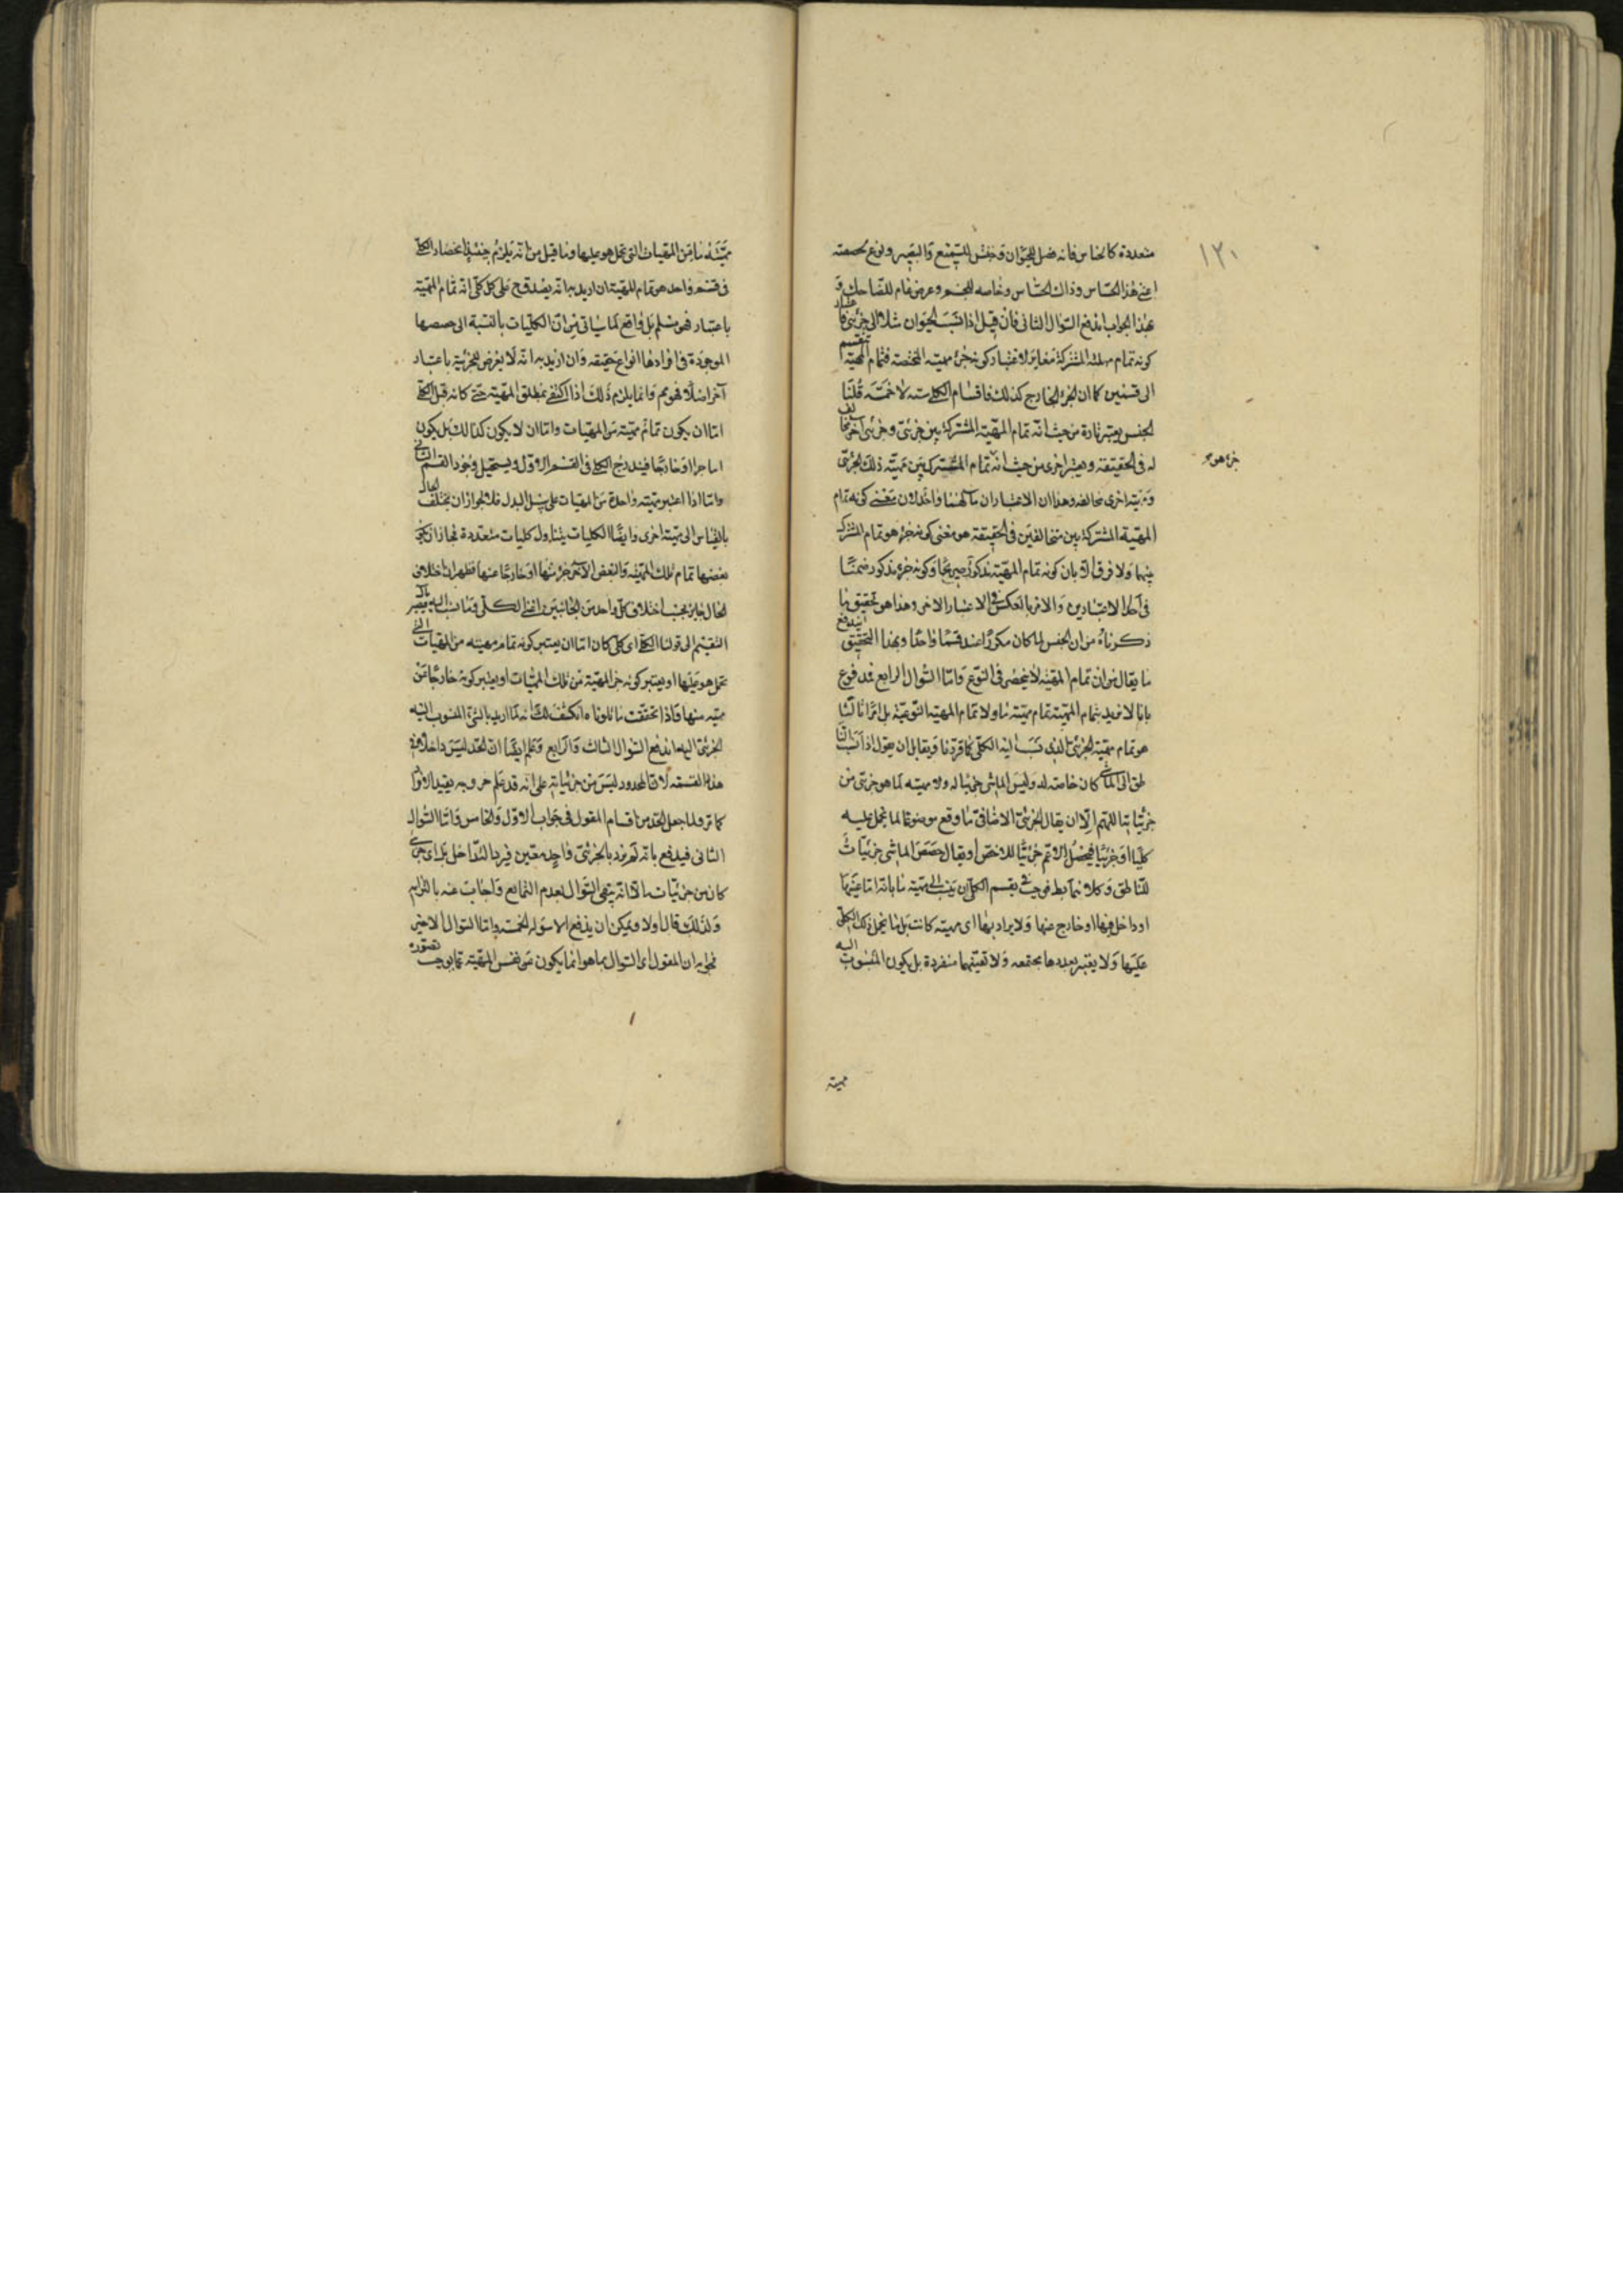 ١٣٠
متعددة كالحساس فانه فصل للحيوان وجنس للسميع والبصير ونوع لحصصه
اعنى هذا الحساس وذاك الحساس وخاصه للجسم وعرض عام للضاحك و
بهذا الجواب اندفع السؤال الثانى فان قيل اذا نسب الحيوان مثلا الى جزئى كان اعتبار
كونه تمام مهيته المشتركة مغايرا لاعتبار كونه جزء مهيته المختصه فتمام المهية ينقسم
الى قسمين كما ان الجزء الخارج كذلك فاقسام الكلى سته لا خمسة قلنا
الجنس يعتبر تارة من حيث انه تمام المهية المشتركة بين جزئى وجزئى آخر مخالف
له فى الحقيقة ويعتبر اخرى من حيث انه تمام المشترك بين مهية ذلك الجزئى
جزء هو
ومهية اخرى مخالفه وهذان الاعتباران مآلهما واحد لان معنى كونه تمام
المهية المشتركة بين متخالفين فى الحقيقة هو معنى كونه جزء هو تمام المشترك
بينهما ولا فرق الا بان كونه تمام المهية مذكور صريحا وكونه جزء مذكور ضمنا
فى احد الاعتبارين والامر بالعكس فى الاعتبار الاخر وهذا هو تحقيق ما
ذكرناه من ان الجنس لما كان مكررا عد قسما واحدا وبهذا التحقيق اندفع
ما يقال من ان تمام المهية لا ينحصر فى النوع واما السؤال الرابع فمدفوع
بانا لا نريد بتمام المهية تمام مهية ما ولا تمام المهية النوعية بل اردنا
هو تمام مهية الجزئى الذى نسب اليه الكلى كما قررنا ويقابل ان يقول اذا نسب النا
طق الى الماشى كان خاصة له وليس الماشى جزئيا له ولا مهيته لما هو جزئى من
جزئياته اللهم الا ان يقال الجزئى الاضافى ما وقع موضوعا لما يحمل عليه
كليا او جزئيا فيحصل الاعم جزئيا للاخص او يقال حصص الماشى جزئيات
للناطق وكلا نمط فوجب تقسيم الكلى ان ينسب الى مهية ما بانه اما عينها
او داخل فيها او خارج عنها ولا يراد بها اى مهية كانت بل ما يحمل ذلك الكلى
عليها ولا يعتبر تعددها مجتمعه ولا تعينها منفردة بل يكون المنسوب اليه
مهية
مهية ما من المهيات التى يحمل هو عليها وما قيل من انه يلزم حينئذ انحصار الكلى
فى قسم واحد هو تمام المهية ان اريد به انه يصدق على كل كلى انه تمام المهية
باعتبار فهو مسلم بل واقع لما سياتى من ان الكليات بالنسبة الى حصصها
الموجودة فى افرادها انواع حقيقه وان اريد به انه لا يعرض للجزئية باعتبار
آخر اصلا فهو مم وانما يلزم ذلك اذا اكتفى بمطلق المهية حتى كانه قيل الكلى
اما ان يكون تمام مهية من المهيات واما ان لا يكون كذلك بل يكون
اما جزا او خارجا فيندرج الكلى فى القسم الاول ويستحيل وجود القسم الثانى
واما اذا اعتبر مهية واحدة من المهيات على سبيل البدل فلا لجواز ان يختلف الحال
بالقياس الى مهية اخرى وايضا الكليات يتناول كليات متعددة فجاز ان يكون
بعضها تمام تلك المهية والبعض الآخر جزء منها او خارجا عنها فظهر ان اختلاف
الحال جايز بحسب اختلاف كل واحد من الجانبين اعنى الكلى وما نسب اليه
التقسيم الى قولنا الكلى اى كلى كان اما ان يعتبر كونه تمام مهيته من المهيات التى
يحمل هو عليها او يعتبر كونه جزء المهية من تلك المهيات او يعتبر كونه خارجا عن
مهية منها واذا تحققت ما تلوناه انكشف لك انه لما اريد بالشئ المنسوب اليه
الجزئى اليها اندفع السؤال الثالث والرابع وعلم ايضا ان الحد ليس داخلا فى
هذه القسمة لان المحدود ليس من جزئياته على انه قد علم خروجه بقيد
كما مر ولما جعل الحد من اقسام المقول فى جواب الاول والخامس واما السؤال
الثانى فيدفع بانه لم يرد بالجزئى واحد معين فيرد التداخل بل اى جزئى
كان من جزئيات الا انه يبقى السؤال بعدم التمانع واجاب عنه بالتزام
ولذلك قال اولا ويمكن ان يدفع الاسولة الخمسة واما السؤال الاخير
فجوابه ان المقول اى السؤال بما هو انما يكون عن نفس المهية بما يوجب تصوره